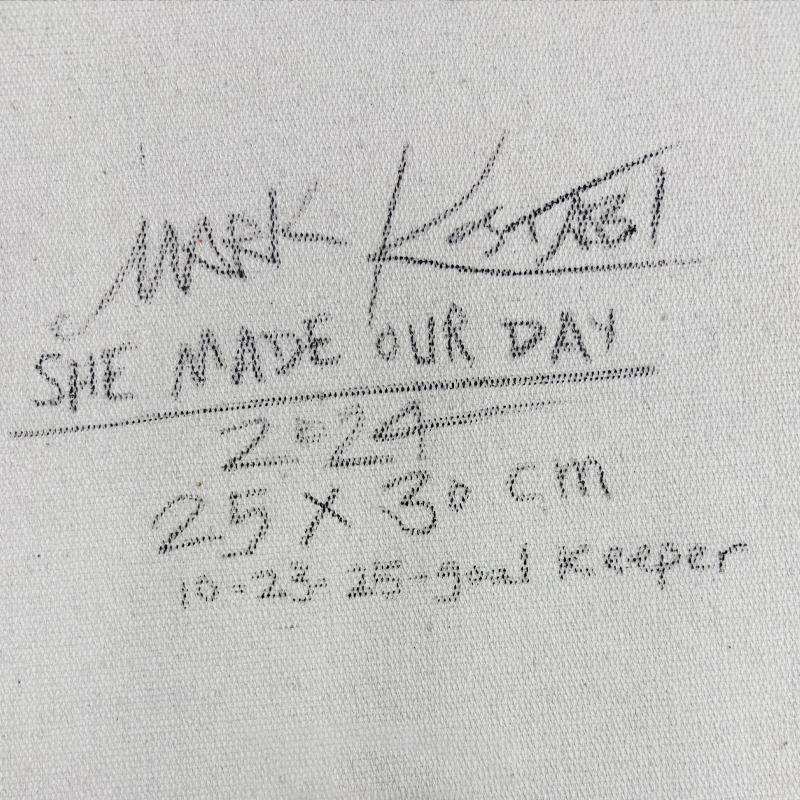 MARK KOSTABI
SHE MADE OUR DAY
2024
25 X 30 cm
10-23-25-goal Keeper